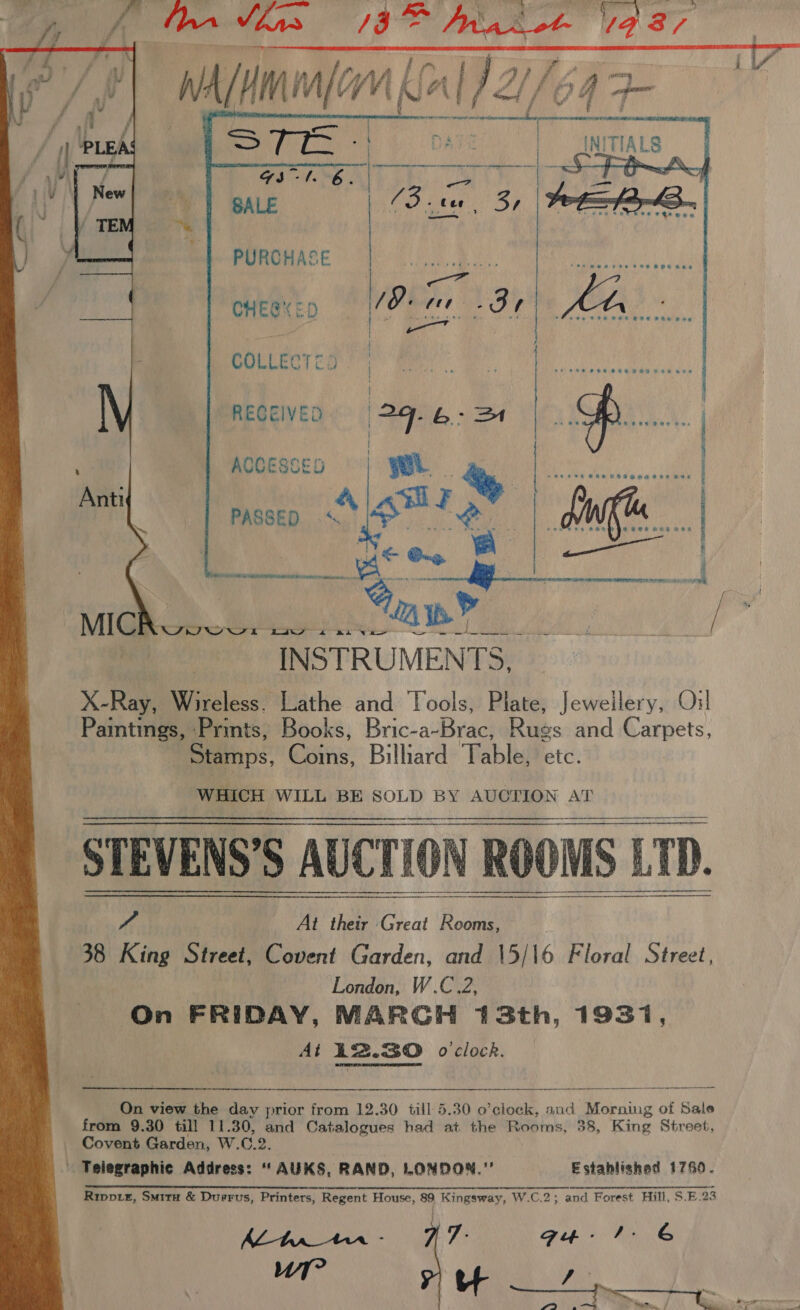 13th March 1931
WA/HMM/CM/Sal/21/647
PLEAS
STE
DATE
INITIALS
93-1. 6.
New
SALE 13. iii. 31
TEM
PURCHASE
CHECKED 19. iii. 31
COLLECTED
M
RECEIVED 29. 6. 31
ACCESSED
Anti
PASSED
MICROSCOPES AND
INSTRUMENTS,
X-Ray, Wireless, Lathe and Tools, Plate, Jewellery, Oil
Paintings, Prints, Books, Bric-a-Brac, Rugs and Carpets,
Stamps, Coins, Billiard Table, etc.
WHICH WILL BE SOLD BY AUCTION AT
STEVENS'S AUCTION ROOMS LTD.
At their Great Rooms,
38 King Street, Covent Garden, and 15/16 Floral Street,
London, W.C.2,
On FRIDAY, MARCH 13th, 1931,
At 12.30 o'clock.
On view the day prior from 12.30 till 5.30 o'clock, and Morning of Sale
from 9.30 till 11.30, and Catalogues had at the Rooms, 38, King Street,
Covent Garden, W.C.2.
Telegraphic Address: "AUKS, RAND, LONDON." Established 1760.
RIDDLE, SMITH & DUFFUS, Printers, Regent House, 89 Kingsway, W.C.2; and Forest Hill, S.E.23
77. 94. 1. 6